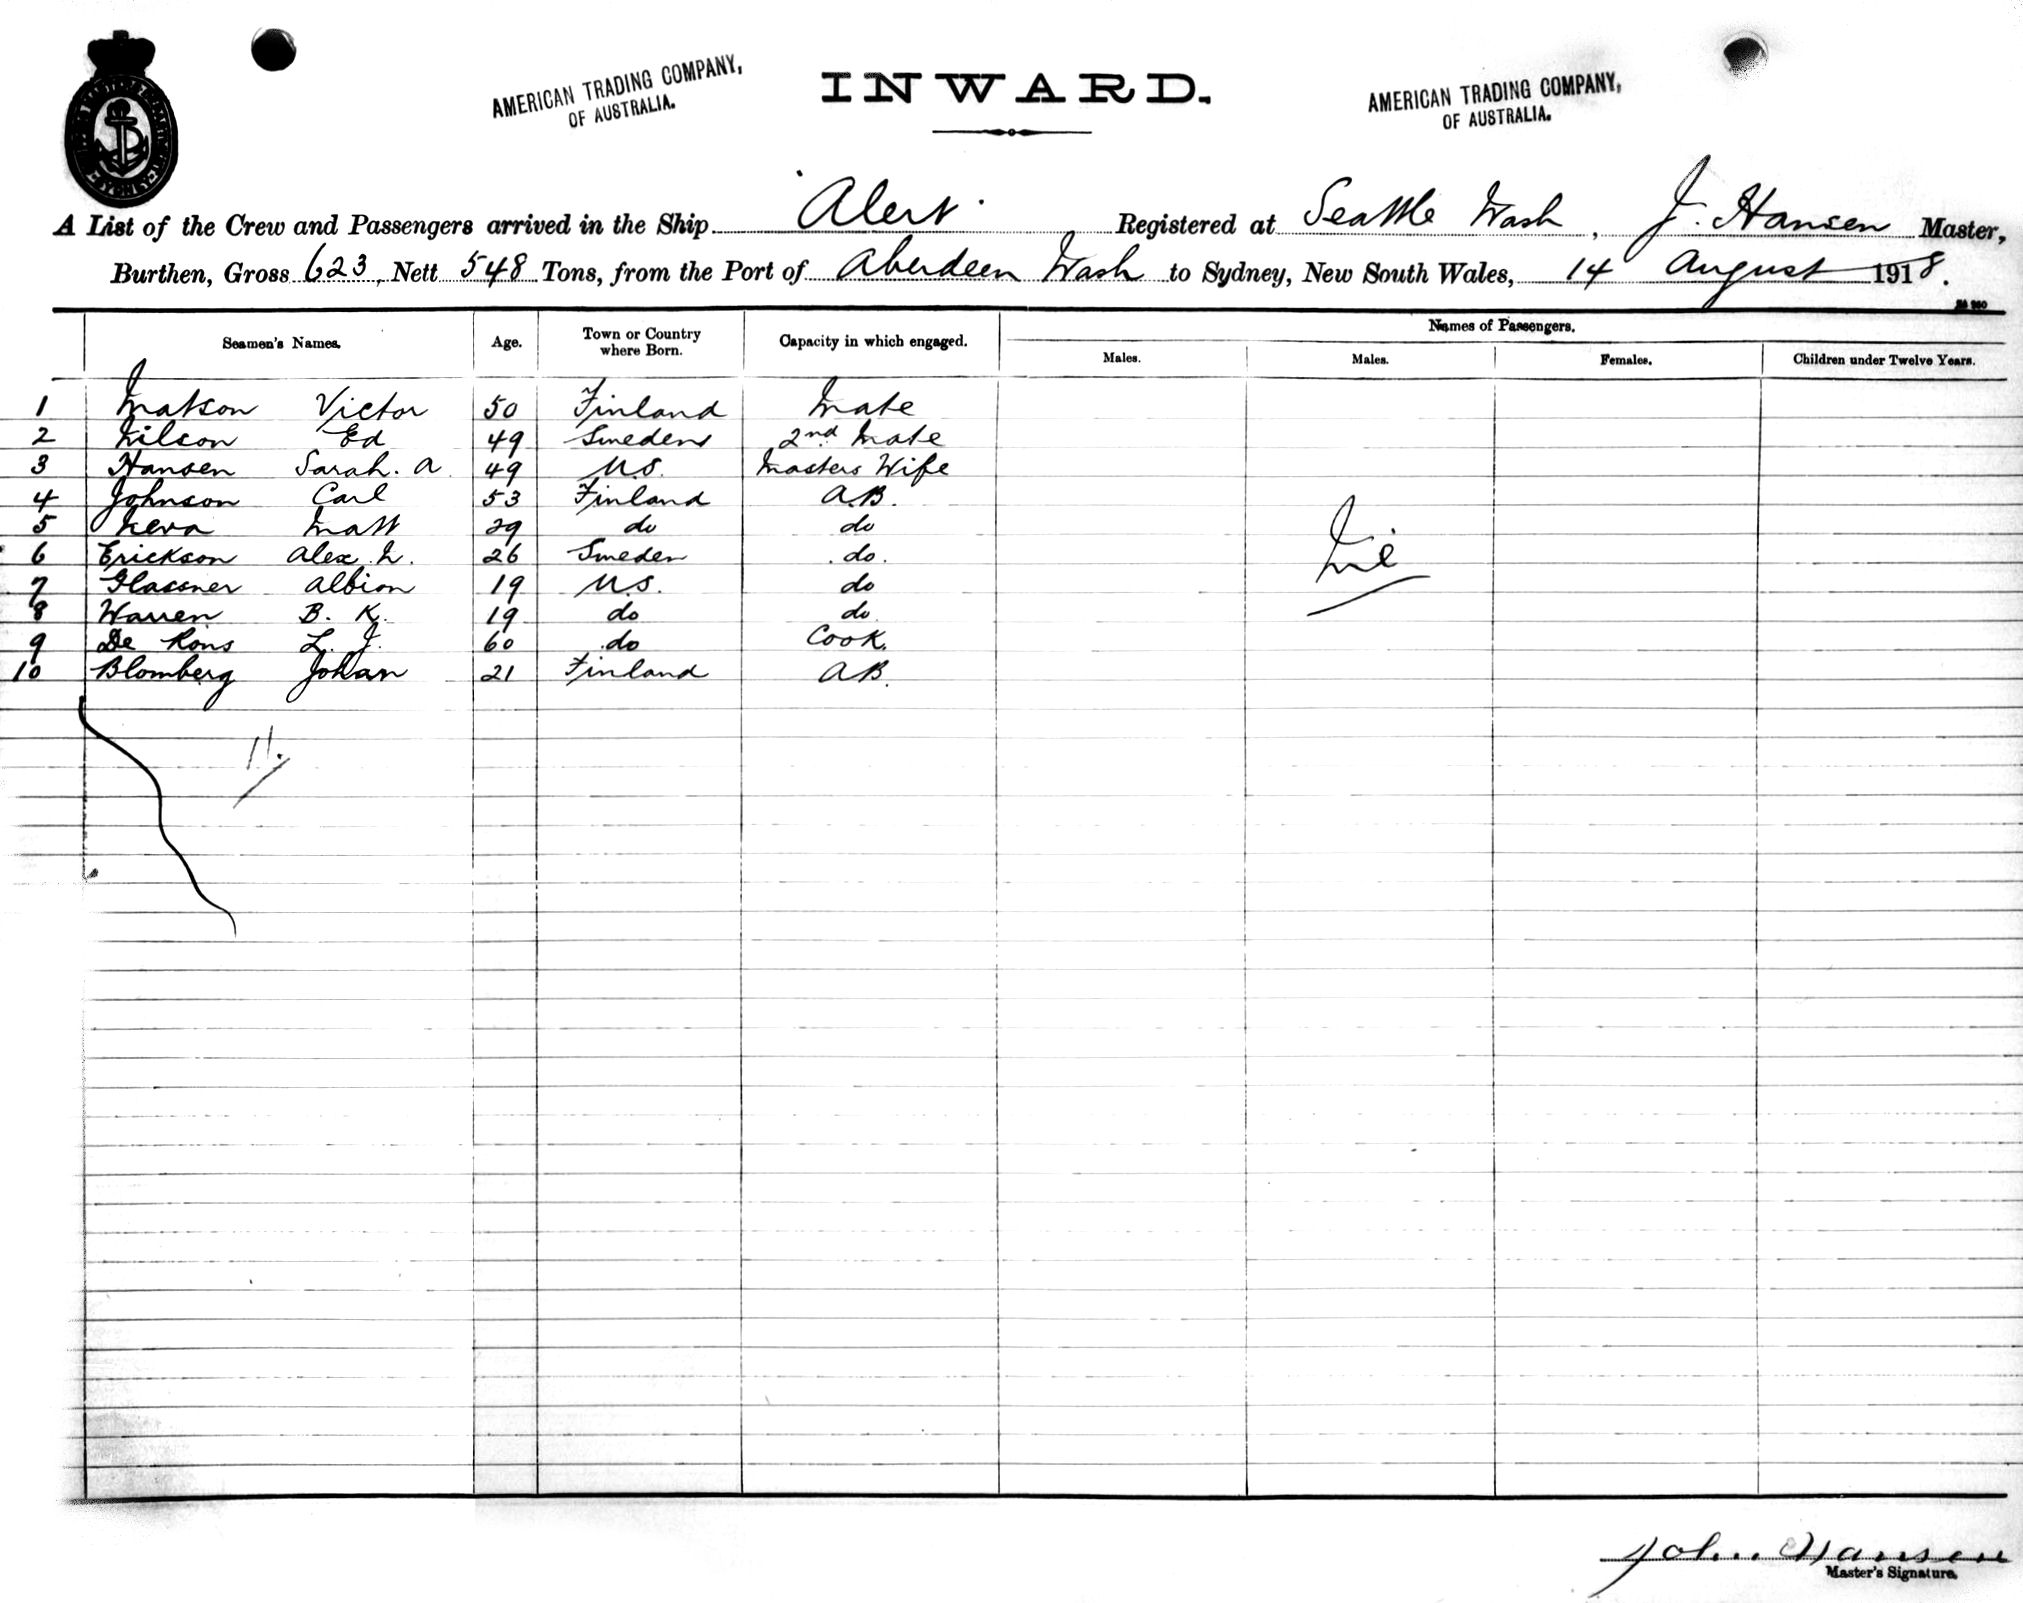 AMERICAN TRADING COMPANY,
OF AUSTRALIA.
INWARD.
AMERICAN TRADING COMPANY,
OF AUSTRALIA.
SYDNEY
A List of the Crew and Passengers arrived in the Ship "Alert" Registered at Seattle Wash, J. Hansen Master,
Burthen, Gross 623, Nett 548 Tons, from the Port of Aberdeen Wash to Sydney, New South Wales, 14 August 1918.
Names of Passengers.
Seamen's Names. Age. Town or Country where Born. Capacity in which engaged. Males. Males. Females. Children under Twelve Years.
1 Matson Victor 50 Finland Mate
2 Nilson Ed 49 Sweden 2nd Mate
3 Hansen Sarah. A 49 U.S. Masters Wife
4 Johnson Carl 53 Finland A.B.
5 Keva Matt 29 do do
6 Erickson Alex N. 26 Sweden do.
7 Glassner Albion 19 U.S. do
8 Warren B. K. 19 do do
9 De Rons L. J. 60 do Cook.
10 Blomberg Johan 21 Finland A.B.
Nil
11.
John Hansen
Master's Signature.